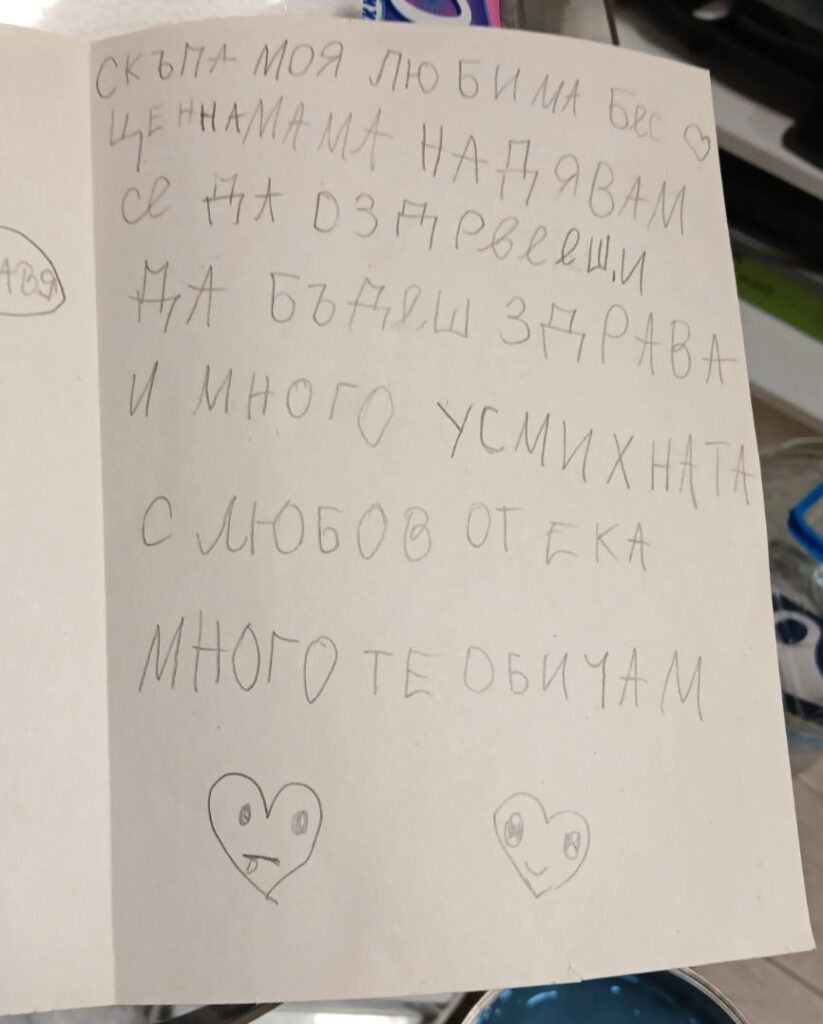 СКЪПА МОЯ ЛЮБИМА БеС
ЦЕННАМАМА НАДЯВАМ
Се ДА ОЗДРВеещИ
ДА БЪДеШ ЗДРАВА
И МНОГО УСМИХНАТА
С ЛЮБОВ ОТ ЕКА
МНОГО ТЕ ОБИЧАМ